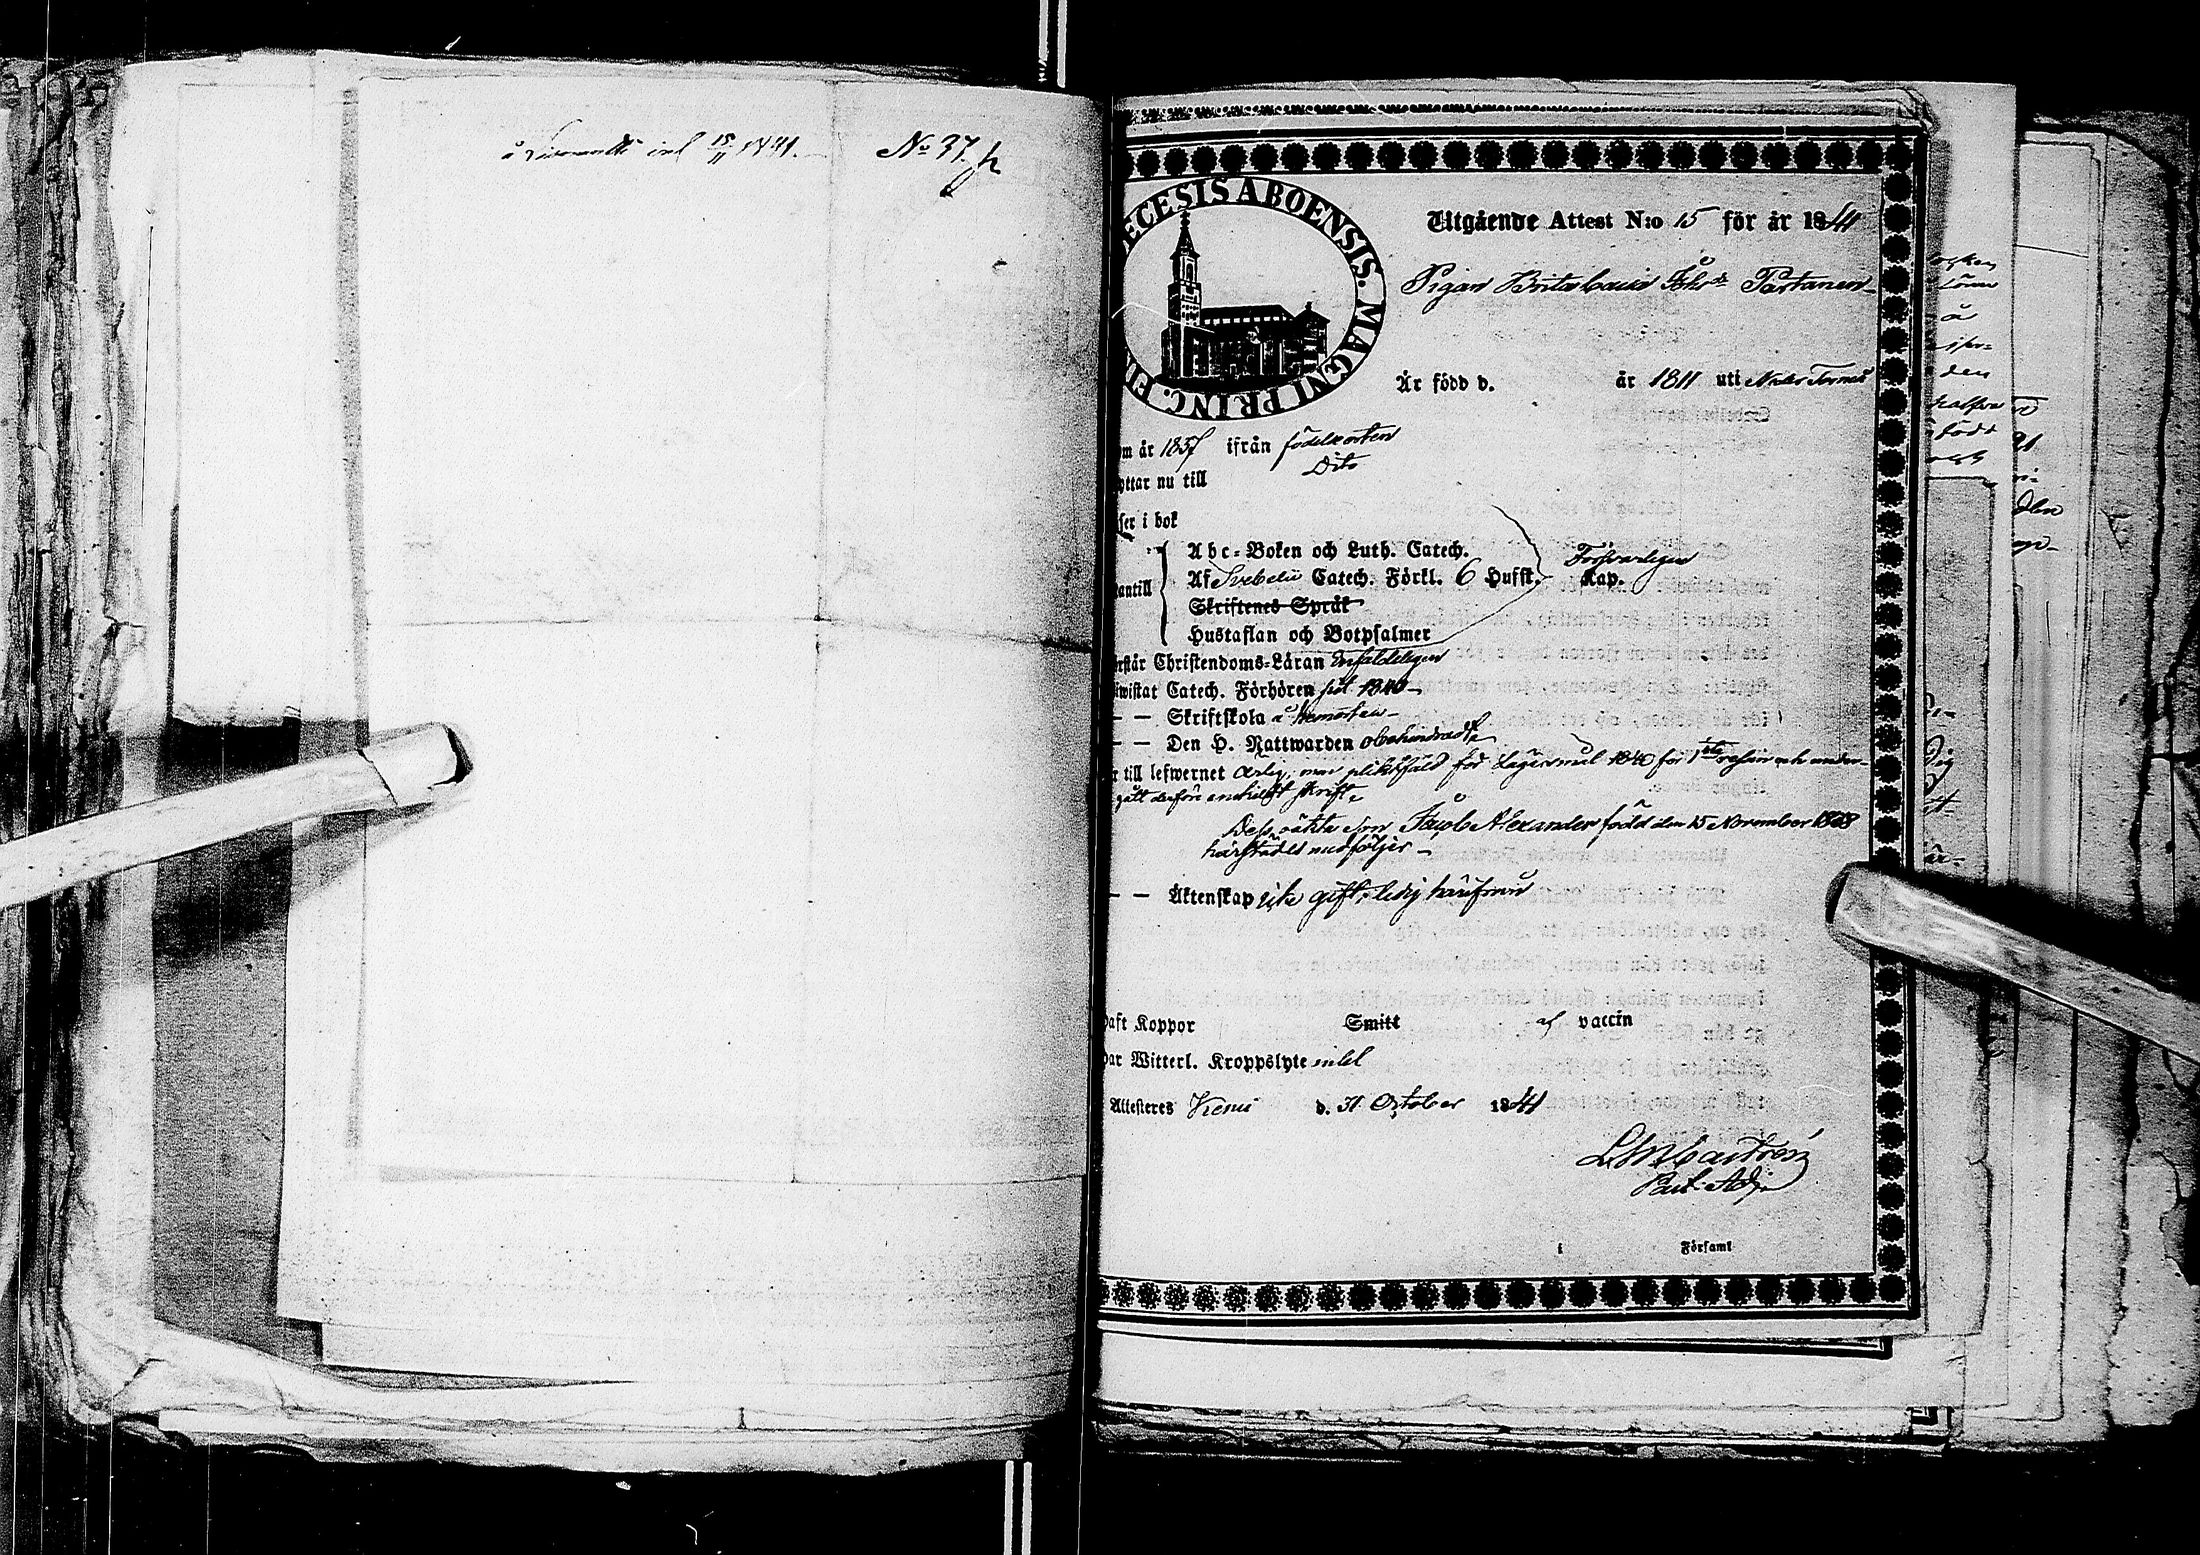 inl 15/11 1841. No 37.
ECESIS ABOENSIS. MAGNI PRINC. FI
Utgående Attest N:o 15 för år 1841
Pigan Brita Caisa Partanen
Är född d. år 1811 uti Neder Torneå
om år 1837 ifrån födelseorten
yttar nu till Dito
ser i bok
Abc-Boken och Luth. Catech.
Af Svebelii Catech. Förkl. 6 Hufst. Kap. Försvarligen
antill
Skriftenes Språk
Hustaflan och Botpsalmer
rstår Christendoms-Läran Enfaldeligen
iwistat Catech. Förhören sist 1840
— — Skriftskola å hemorten
— — Den H. Nattwarden obehindradt
r till lefwernet ärlig, men pliktfäld för Lägersmål 1840 för 1sta resan och under-
gått derföre enskildt skrift.
Dess oäkta son Jacob Alexander född den 15 November 1838
härstädes medföljer
— — Äktenskap icke gift, ledig härifrån
haft Koppor Smitt af vaccin
har Witterl. Kroppslyte intet
Attesteres Kemi d. 31 October 1841
L M Castrén
Past. Adj.
i Församl